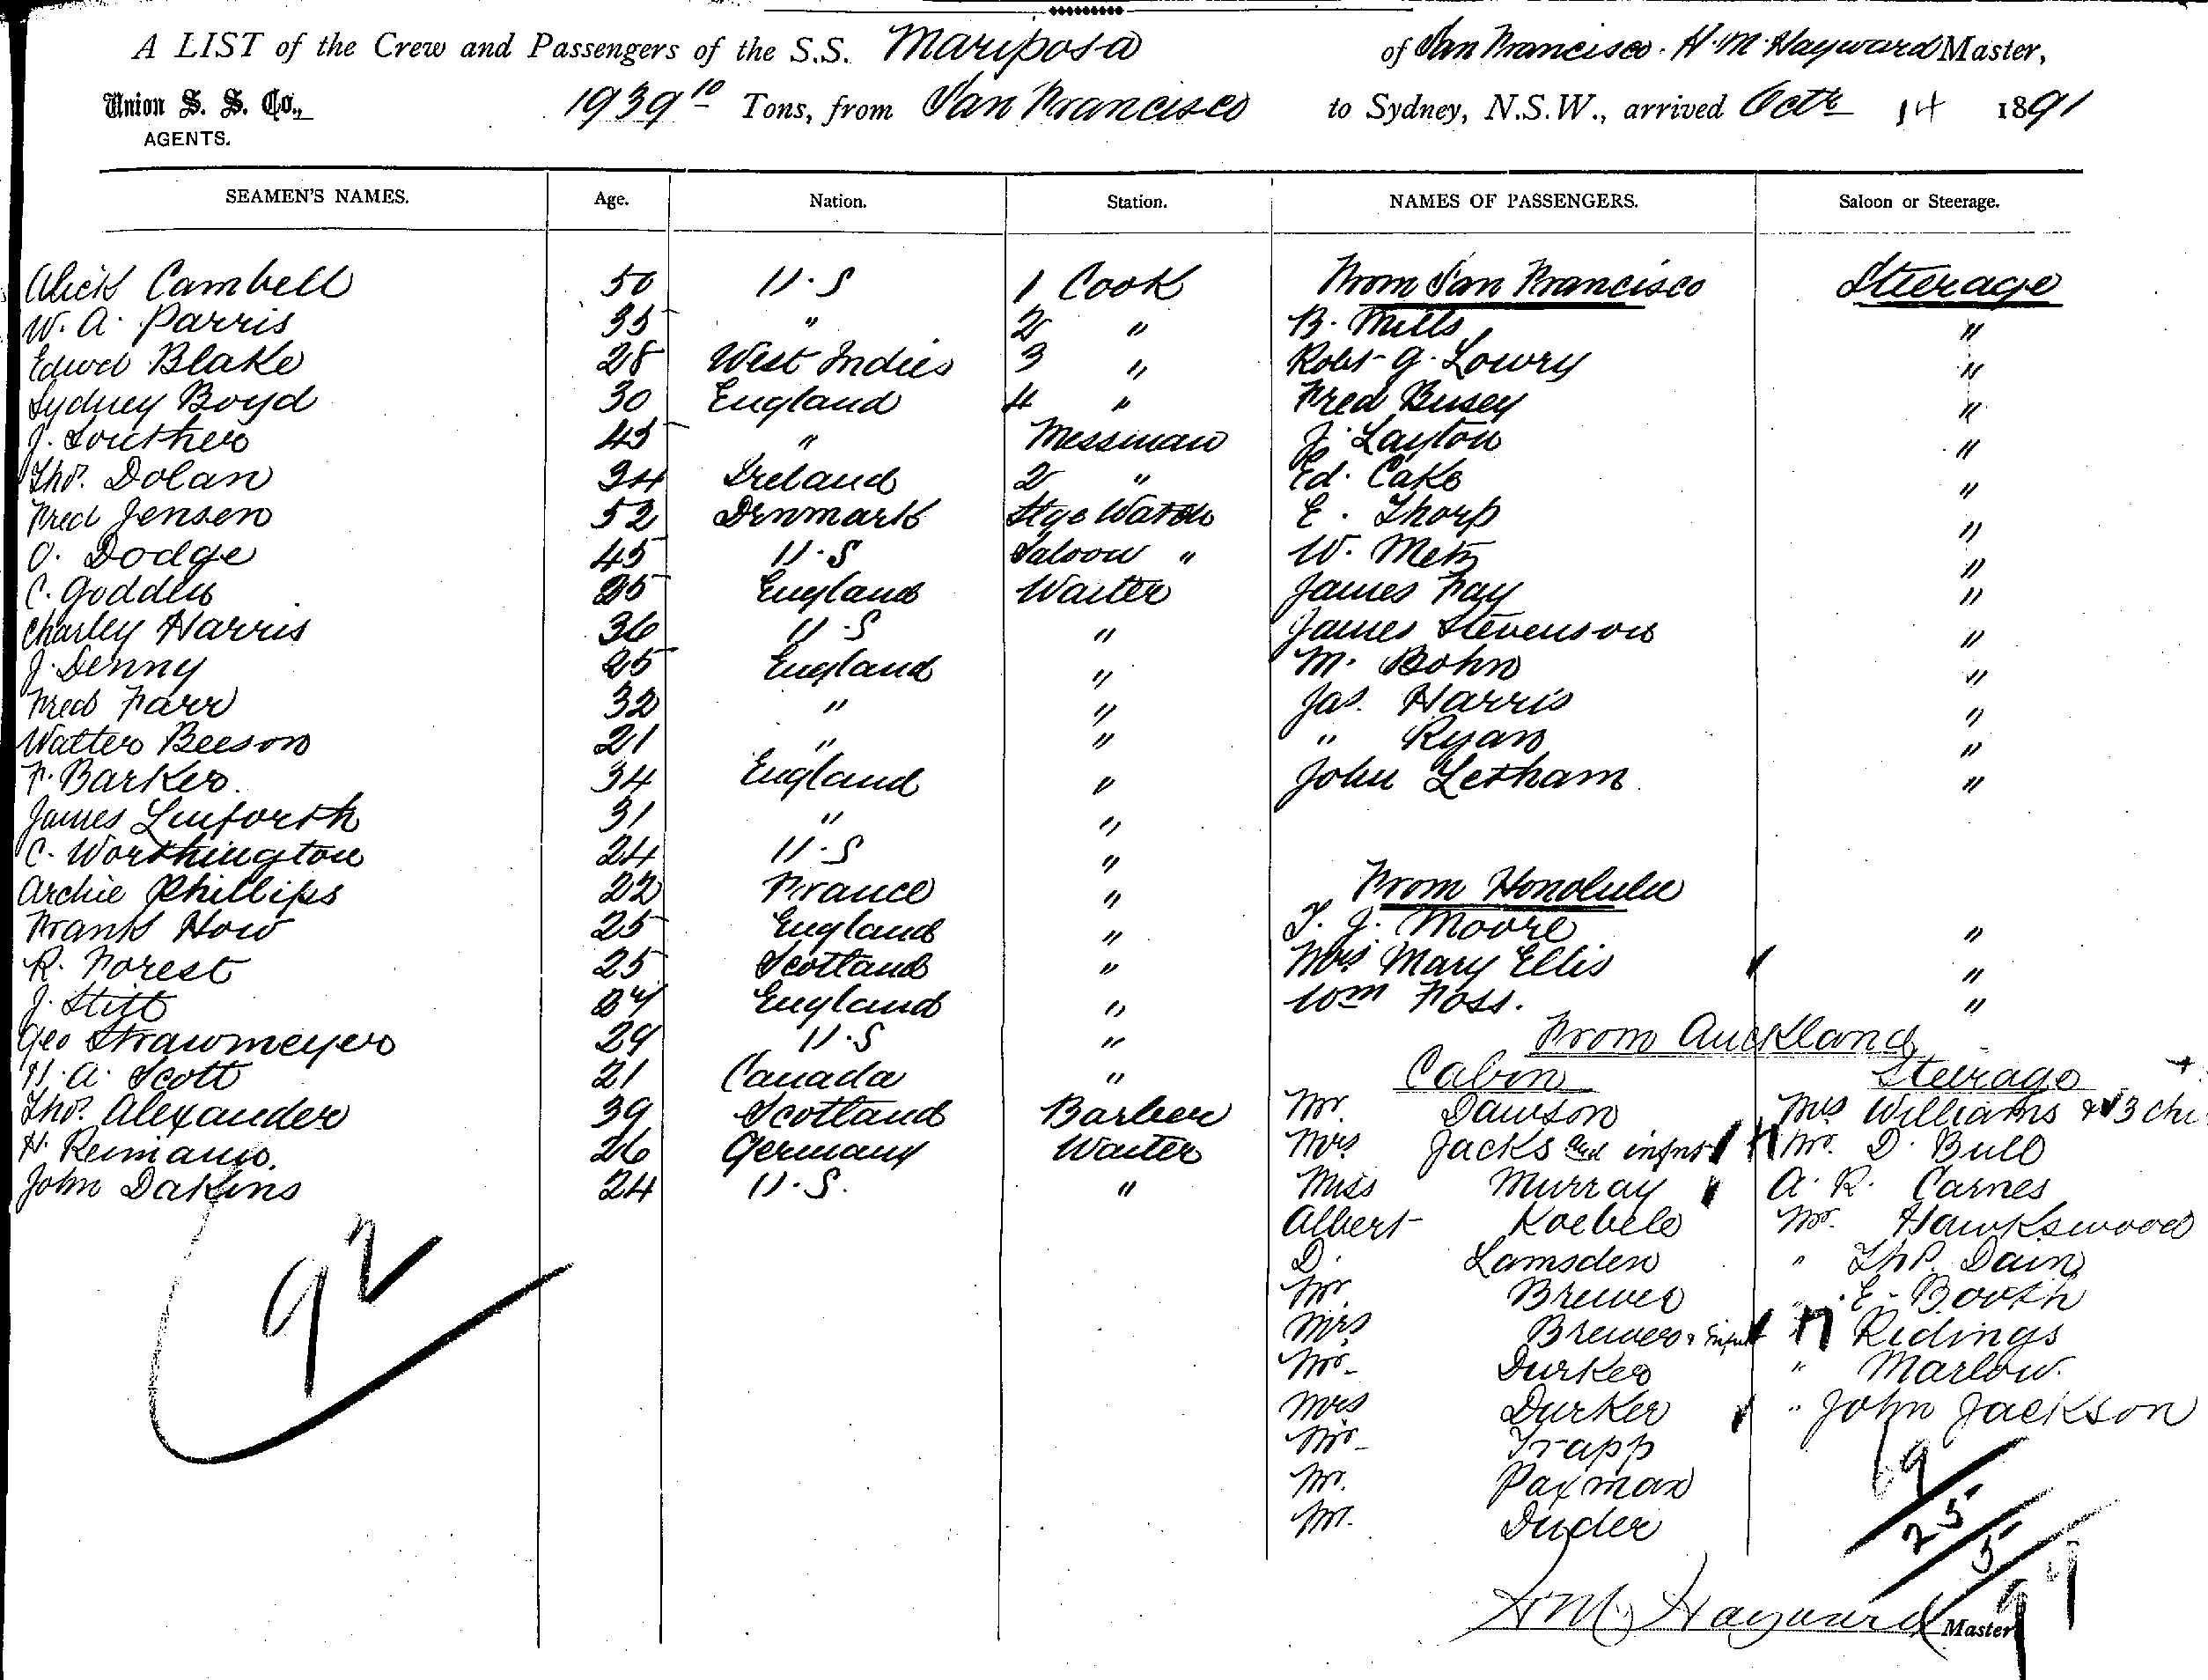 A LIST of the Crew and Passengers of the S.S. Mariposa of San Francisco. H. M. Hayward Master,
Union S. S. Co., 1939 10 Tons, from San Francisco to Sydney, N.S.W., arrived Octr 14 1891
AGENTS.
SEAMEN'S NAMES. Age. Nation. Station. NAMES OF PASSENGERS. Saloon or Steerage.
Alick Cambell 50 U.S 1 Cook From San Francisco Steerage
W. A. Parris 35 " 2 " B. Mills "
Edwd Blake 28 West Indies 3 " Robt G. Lowry "
Sydney Boyd 30 England 4 " Fred Busey "
J. Souther 45 " Messman J. Layton "
Thos. Dolan 34 Ireland 2 " Ed. Cake "
Fred Jensen 52 Denmark Stge Watch E. Thorp "
O. Dodge 45 U.S Saloon " W. Metz "
C. Godden England Waiter James Fay "
Charley Harris 36 U.S " James Stevenson "
J. Denny 25 England " M. Bohn "
Fred Farr 32 " " Jas. Harris "
Walter Beeson 21 " " " Ryan "
F. Barker. 34 England " John Letham "
James Linforth 31 " "
C. Worthington 24 U.S "
Archie Phillips 22 France " From Honolulu
Frank How 25 England " T. J. Moore "
R. Forest 25 Scotland " Mrs Mary Ellis "
J. Stitt England " Wm Foss. "
Geo Strawmeyer 29 U.S " From Auckland
H. A. Scott 21 Canada " Cabin Steerage
Thos. Alexander 39 Scotland Barber Mr. Dawson Mrs Williams & 3 chi
H. Reimann. 26 Germany Waiter Mrs Jacks and infnt Mr. D. Bull
John Dakins 24 U.S. " Miss Murray A. R. Carnes
Albert Koebele Mr. Hawkswood
D. Lamsden " Thos. Dain
92 Mr. Brewer " E. Booth
Mrs Brewer & Infnt " Ridings
Mr. Durker " Marlow.
Mrs Durker " John Jackson
Mr. Trapp
Mr. Paxman 69
Mr. Duder 25
5
H M Hayward Master